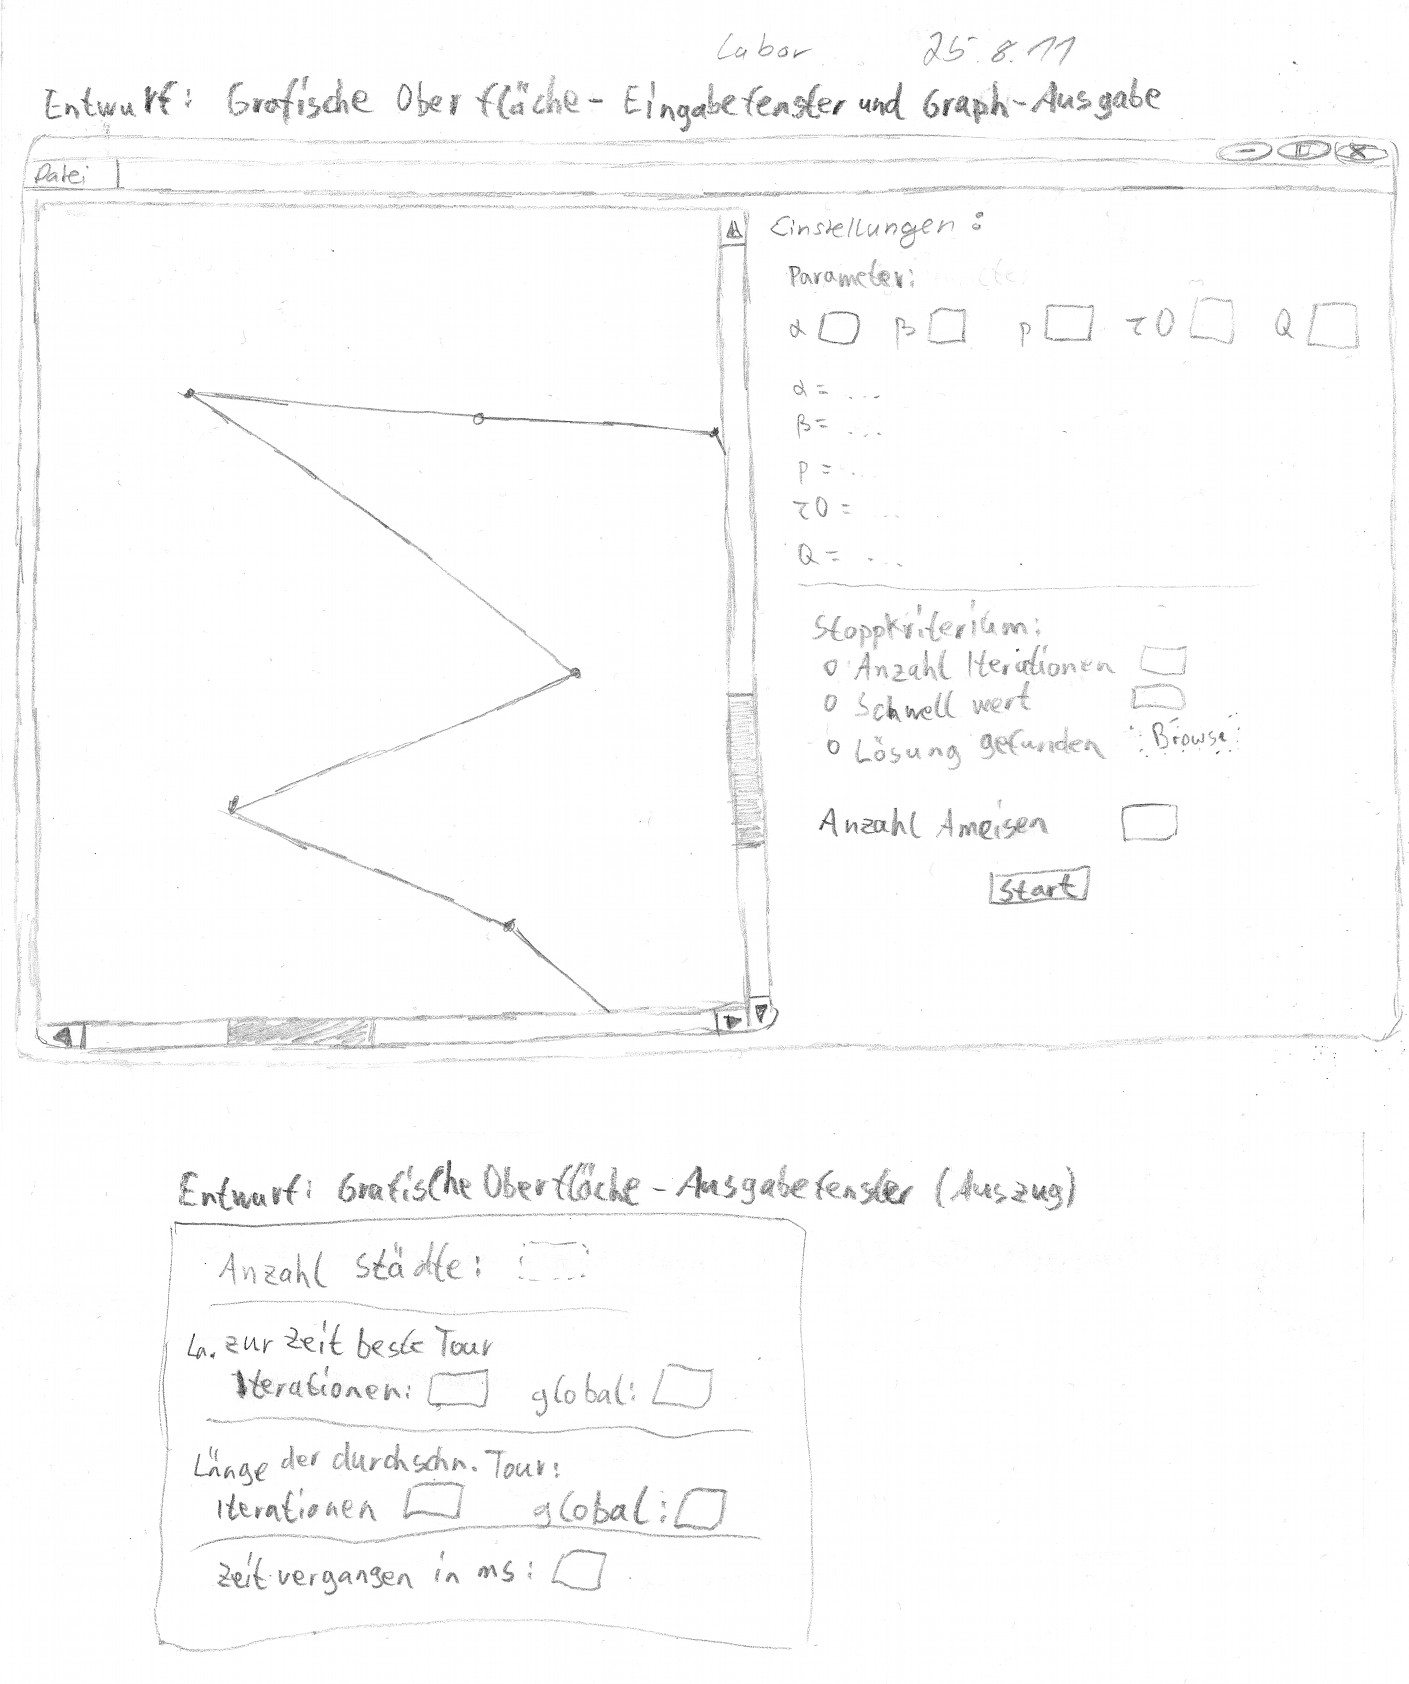 Labor 25.8.11
Entwurf: Grafische Oberfläche - Eingabefenster und Graph-Ausgabe
Datei
Einstellungen:
Parameter:
α β ρ τ0 Q
α = ...
β = ...
ρ = ...
τ0 = ...
Q = ...
Stoppkriterium:
Anzahl Iterationen
Schwellwert
Lösung gefunden Browse
Anzahl Ameisen
Start
Entwurf: Grafische Oberfläche - Ausgabefenster (Auszug)
Anzahl Städte:
zur Zeit beste Tour
Iterationen: global:
Länge der durchschn. Tour:
Iterationen global:
Zeit vergangen in ms: